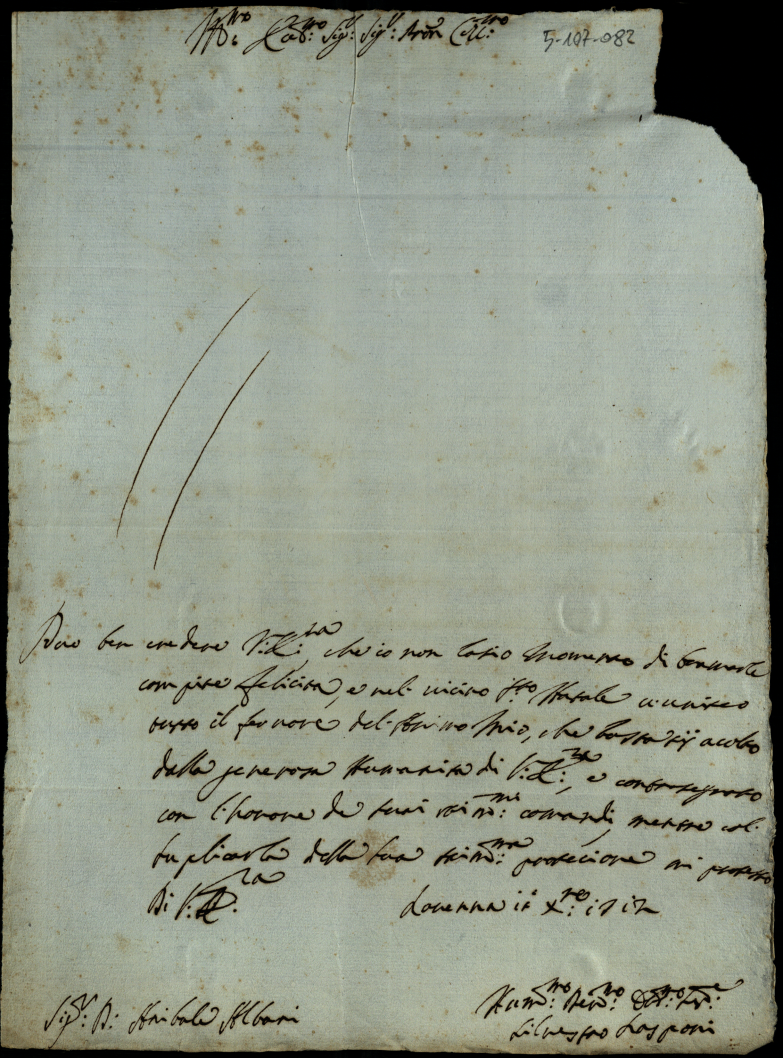 Ill.mo et Ecc.mo Sig.r Sig.r Pron Coll.mo
5-107-082
Può ben credere V: E:za, che io non lascio momento di bramarle
compite felicità, e nel vicino S.to Natale u'unisco
tutto il fervore dell'Animo Mio, che basta sij acolto
dalla generosa Humanità di V: E:za, e contrasegnato
con l'honore de suoi stim.mi comandi, mentre col
suplicarla della sua stim.ma protecione mi protesto
Di V: E:za
Ravenna 11 X.re 1712
Sig.r D: Anibale Albani
Hum.mo Dev.mo Obl.mo Ser.e
Silvestro Rasponi